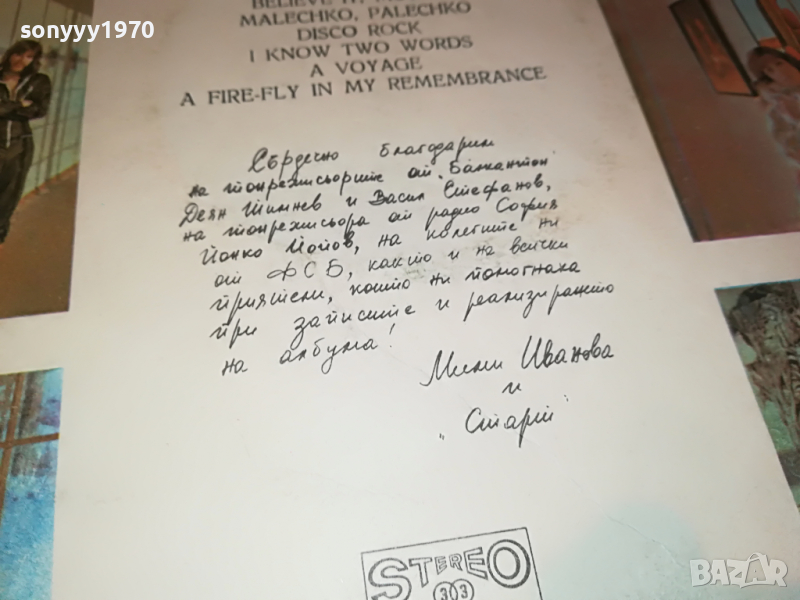 sonyyy1970
MALECHKO, PALECHKO
DISCO ROCK
I KNOW TWO WORDS
A VOYAGE
A FIRE-FLY IN MY REMEMBRANCE
Сърдечно благодарим
на тонрежисьорите от „Балкантон"
Деян Тимнев и Васил Стефанов,
на тонрежисьора от радио София
Йонко Попов, на колегите ни
от ФСБ, както и на всички
приятели, които ни помогнаха
при записите и реализирането
на албума!
Мими Иванова
и
„Старт"
STEREO
33
BAZAR